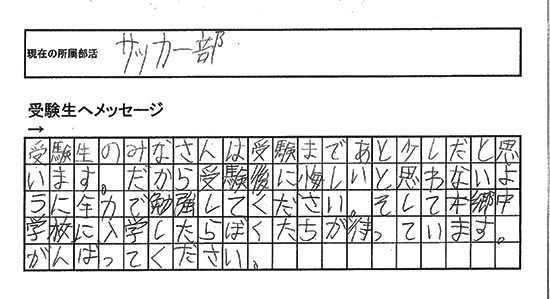 現在の所属部活 サッカー部
受験生へメッセージ
→
受験生のみなさんは受験まであと少しだと思
います。だから受験後に悔しいと思わないよ
うに全力で勉強してください。そして本郷中
学校に入学したらぼくたちが待っています。
がんばってください。